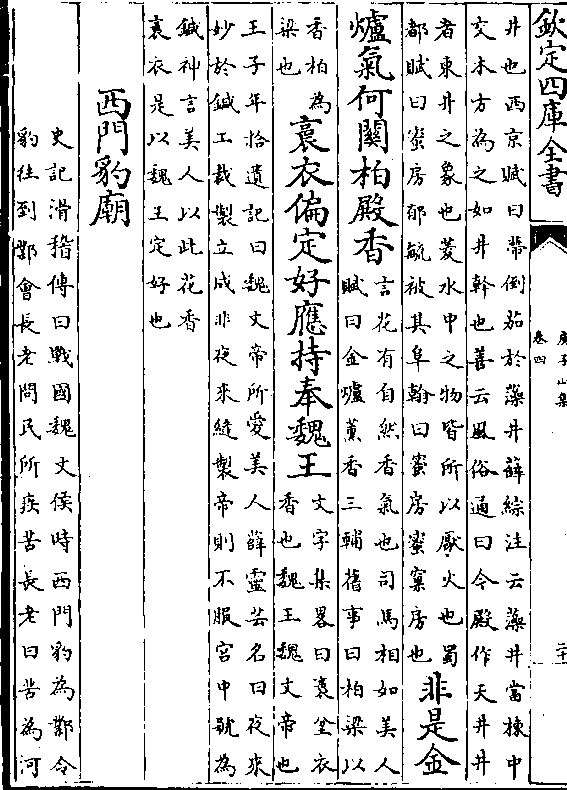 欽定四庫全書
庾子山集
卷四
二十
井也西京賦曰蔕倒茄於藻井薛綜注云藻井當棟中
交木方為之如井幹也善云風俗通曰今殿作天井井
者東井之象也菱水中之物皆所以厭火也蜀
都賦曰蜜房郁毓被其阜翰曰蜜房蜜窠房也
非是金
爐氣何關柏殿香
言花有自然香氣也司馬相如美人
賦曰金爐薰香三輔舊事曰柏梁以
香柏為
梁也
裛衣偏定好應持奉魏王
文字集畧曰裛坌衣
香也魏王魏文帝也
王子年拾遺記曰魏文帝所愛美人薛靈芸名曰夜來
妙於鍼工裁製立成非夜來縫製帝則不服宫中號為
鍼神言美人以此花香
裛衣是以魏王定好也
西門豹廟
史記滑稽傳曰戰國魏文侯時西門豹為鄴令
豹往到鄴會長老問民所疾苦長老曰苦為河